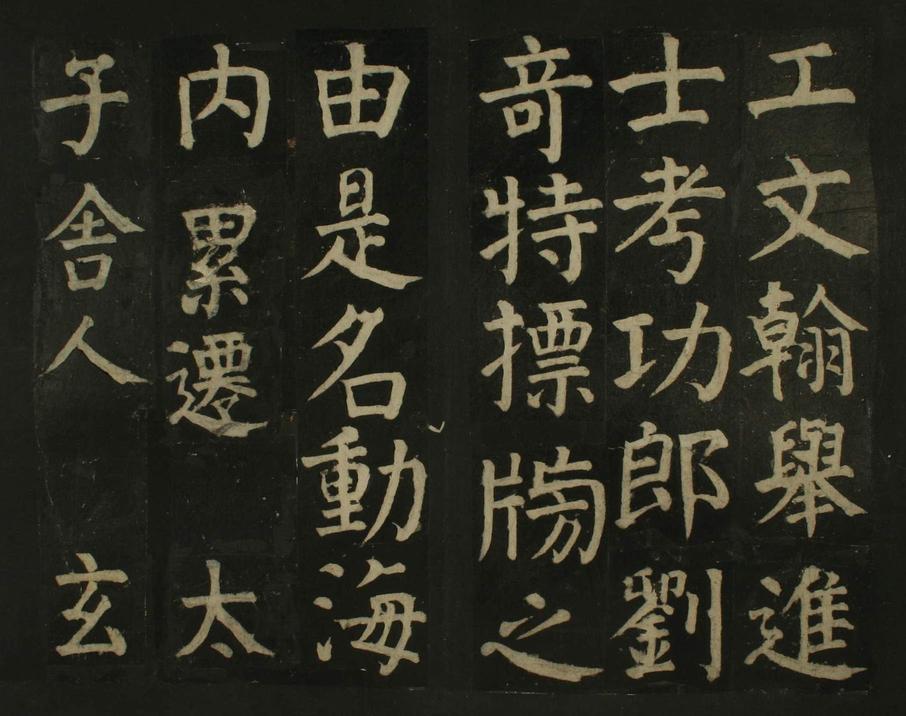 工文翰舉進
士考功郎劉
竒特摽牓之
由是名動海
内累遷 太
子舍人 玄